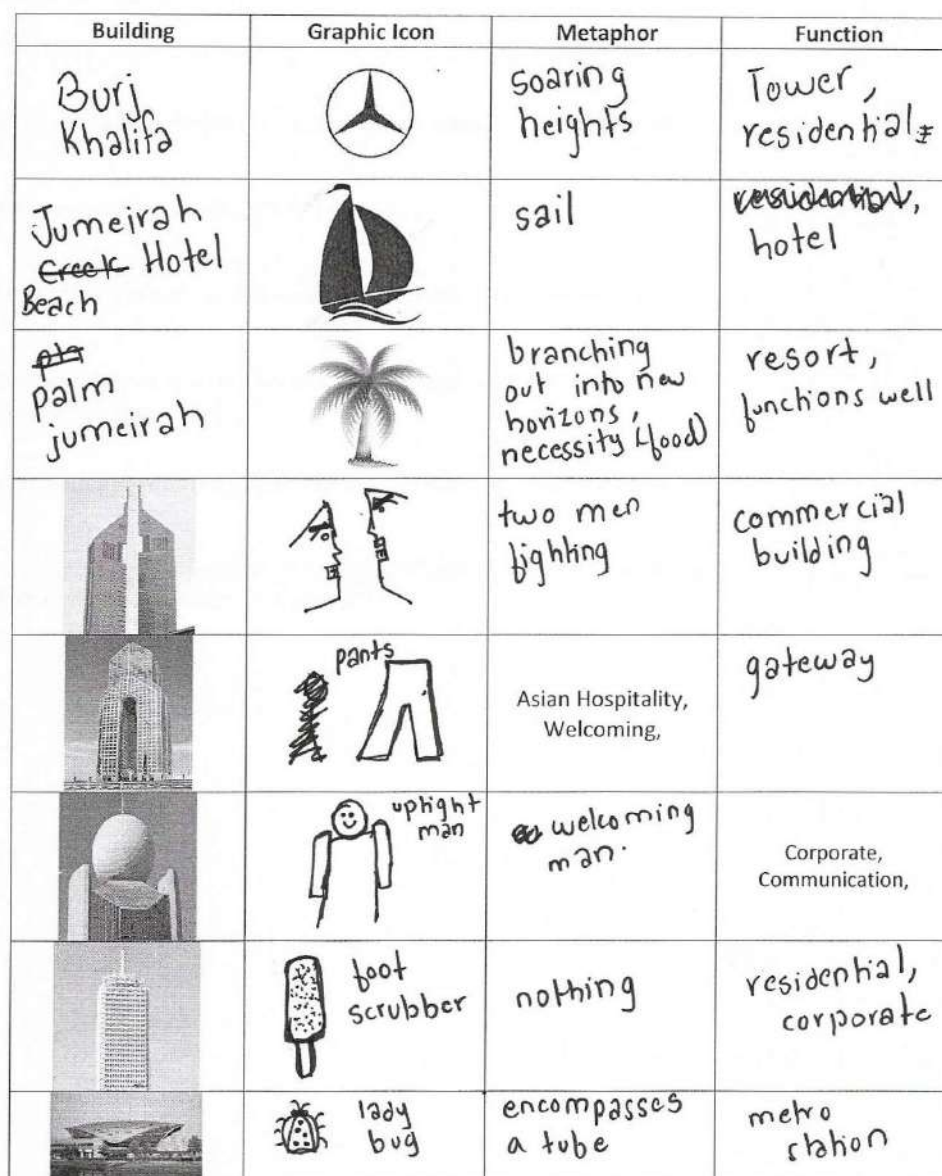 Building Graphic Icon Metaphor Function
Burj
Khalifa
soaring
heights
Tower,
residential
Jumeirah
Creek Hotel
Beach
sail
residential,
hotel
pla
palm
jumeirah
branching
out into new
horizons,
necessity (food)
resort,
functions well
two men
fighting
commercial
building
pants
Asian Hospitality,
Welcoming,
gateway
upright
man
welcoming
man.
Corporate,
Communication,
foot
scrubber
nothing
residential,
corporate
lady
bug
encompasses
a tube
metro
station